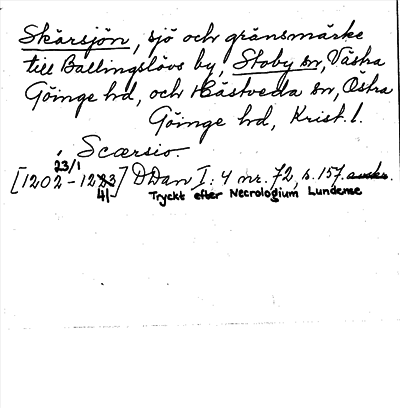 Skärsjön, sjö och gränsmärke
till Ballingslövs by, Stoby sn, Västra
Göinge hd, och Hästveda sn, Östra
Göinge hd, Krist. l.
Scærsio.
23/1
[1202-1223] DDan I:4 nr. 72, s. 157.
4/-
Tryckt efter Necrologium Lundense